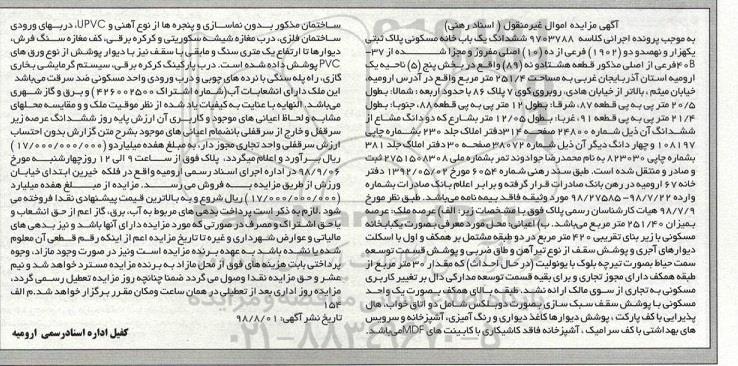 آگهی مزایده اموال غیرمنقول ( اسناد رهنی )
به موجب پرونده اجرایی کلاسه ۹۷۰۳۷۸۸ ششدانگ یک باب خانه مسکونی پلاک ثبتی
یکهزار و نهصدو دو (۱۹۰۲) فرعی از ده (۱۰) اصلی مفروز و مجزا شــده از ۳۷-
۴۰B فرعی از اصلی مذکور قطعه هشتادونه (۸۹) واقع در بخش پنج (۵) ناحیه یک
ارومیه استان آذربایجان غربی به مساحت ۲۵۱/۴ متر مربع واقع در آدرس ارومیه،
خیابان میثم ، بالاتر از خیابان هادی، روبروی کوی ۷ پلاک ۸۶ با حدود اربعه : شمالا: بطول
۲۰/۵ متر پی به پی قطعه ۸۷، شرقا: بطول ۱۲ متر پی به پی قطعه ۸۸، جنوبا: بطول
۲۱/۴ متر پی به پی قطعه ۹۱، غربا: بطول ۱۲/۰۵ متر بشارع که دو دانگ مشاع از
ششدانگ آن ذیل شماره ۲۴۸۰۰ صفحه ۳۱۴ دفتر املاک جلد ۲۳۰ بشماره چاپی
۱۰۸۱۹۷ و چهار دانگ دیگر آن ذیل ۳۸۰۷۲ صفحه ۳۰ دفتر املاک جلد ۳۸۱
بشماره چاپی ۸۲۳۰۳۰ به نام محمدرضا جوادوند تمر بشماره ملی ۲۷۵۱۵۰۸۳۰۸ ثبت
و صادر و منتقل شده است. طبق سند رهنی شماره ۶۰۵۴ مورخ ۱۳۹۲/۰۵/۰۲ دفتر
خانه ۶۷ ارومیه در رهن بانک صادرات قرار گرفته و برابر اعلام بانک صادرات بشماره
وارده ۹۸/۷/۲۲-۹۸/۲۷۵۸۵ مورد وثیقه فاقد بیمه نامه می‌باشد. طبق نظر مورخ
۹۸/۷/۹ هیات کارشناسان رسمی پلاک فوق با مشخصات زیر: الف) عرصه ملک: عرصه
بمیزان ۲۵۱/۴۰ متر مربع می‌باشد. ب) اعیانی: محل مورد معرفی بصورت یکبابخانه
مسکونی با زیر بنای تقریبی ۴۲۰ متر مربع در دو طبقه مشتمل بر همکف و اول با اسکلت
دیوارهای آجری و پوشش سقف از نوع تیر آهن و طاق ضربی و پوشش قسمت توسعه
سمت حیاط بصورت تیرچه بلوک با یونولیت (در حال احداث) که مقدار ۳۰ متر مربع از
طبقه همکف دارای مجوز تجاری و برای بقیه قسمت توسعه مدارکی دال بر تغییر کاربری
مسکونی به تجاری از سوی مالک ارائه نشد. طبقه بالای همکف بصورت یک واحد
مسکونی با پوشش سقف سبک سازی بصورت دوبلکس شامل دو اتاق خواب، هال
پذیرایی با کف پارکت ، پوشش دیوارها کاغذ دیواری و رنگ آمیزی، آشپزخانه و سرویس
های بهداشتی با کف سرامیک ، آشپزخانه فاقد کاشیکاری با کابینت های MDF می‌باشد.
ساختمان مذکور بدون نماسازی و پنجره ها از نوع آهنی و UPVC، دربهای ورودی
ساختمان فلزی، درب مغازه شیشه سکوریتی و کرکره برقی، کف مغازه سنگ فرش،
دیوارها تا ارتفاع یک متری سنگ و مابقی با سقف نیز با دیوار پوشش از نوع ورق های
PVC پوشش داده شده است. درب پارکینگ کرکره برقی، سیستم گرمایشی بخاری
گازی، راه پله سنگی با نرده های چوبی و درب ورودی واحد مسکونی ضد سرقت می‌باشد
این ملک دارای انشعابات آب (شماره اشتراک ۴۲۶۰۰۲۵۰۰ ) و برق و گاز شهری
می‌باشد. النهایه با عنایت به کیفیات یاد شده از نظر موقعیت ملک و و مقایسه محلهای
مشابه و لحاظ اعیانی های موجود و کاربری آن ارزش پایه روز ششدانگ عرصه زیر
سرقفل و خارج از سرقفلی بانضمام اعیانی های موجود بشرح متن گزارش بدون احتساب
ارزش سرقفلی واحد تجاری مجوز دار، به مبلغ هفده میلیاردو (۱۷/۰۰۰/۰۰۰/۰۰۰)
ریال برآورد و اعلام میگردد. پلاک فوق از ساعت ۹ الی ۱۲ روز چهارشنبه مورخ
۹۸/۹/۰۶ در اداره اجرای اسناد رسمی ارومیه واقع در فلکه خیرین ابتدای خیابان
ورزش از طریق مزایده به فروش می رسد. مزایده از مبلغ هفده میلیارد
(۱۷/۰۰۰/۰۰۰/۰۰۰) ریال شروع و به بالاترین قیمت پیشنهادی نقدا فروخته می
شود .لازم به ذکر است پرداخت بدهی های مربوط به آب، برق، گاز اعم از حق انشعاب و
یا حق اشتراک و مصرف در صورتی که مورد مزایده دارای آنها باشد و نیز بدهی های
مالیاتی و عوارض شهرداری و غیره تا تاریخ مزایده اعم از اینکه رقم قطعی آن معلوم
شده یا نشده باشد به عهده برنده مزایده است ونیز در صورت وجود مازاد، وجوه
پرداختی بابت هزینه های فوق از محل مازاد به برنده مزایده مسترد خواهد شد و نیم
عشر و حق مزایده نقدا وصول می گردد ضمنا چنانچه روز مزایده تعطیل رسمی گردد،
مزایده روز اداری بعد از تعطیلی در همان ساعت ومکان مقرر برگزار خواهد شد.م الف
۱۵۴
تاریخ نشر آگهی: ۹۸/۸/۰۱
کفیل اداره اسنادرسمی ارومیه
۰۲۱-۸۸۳۴۹۶۷۰-۵